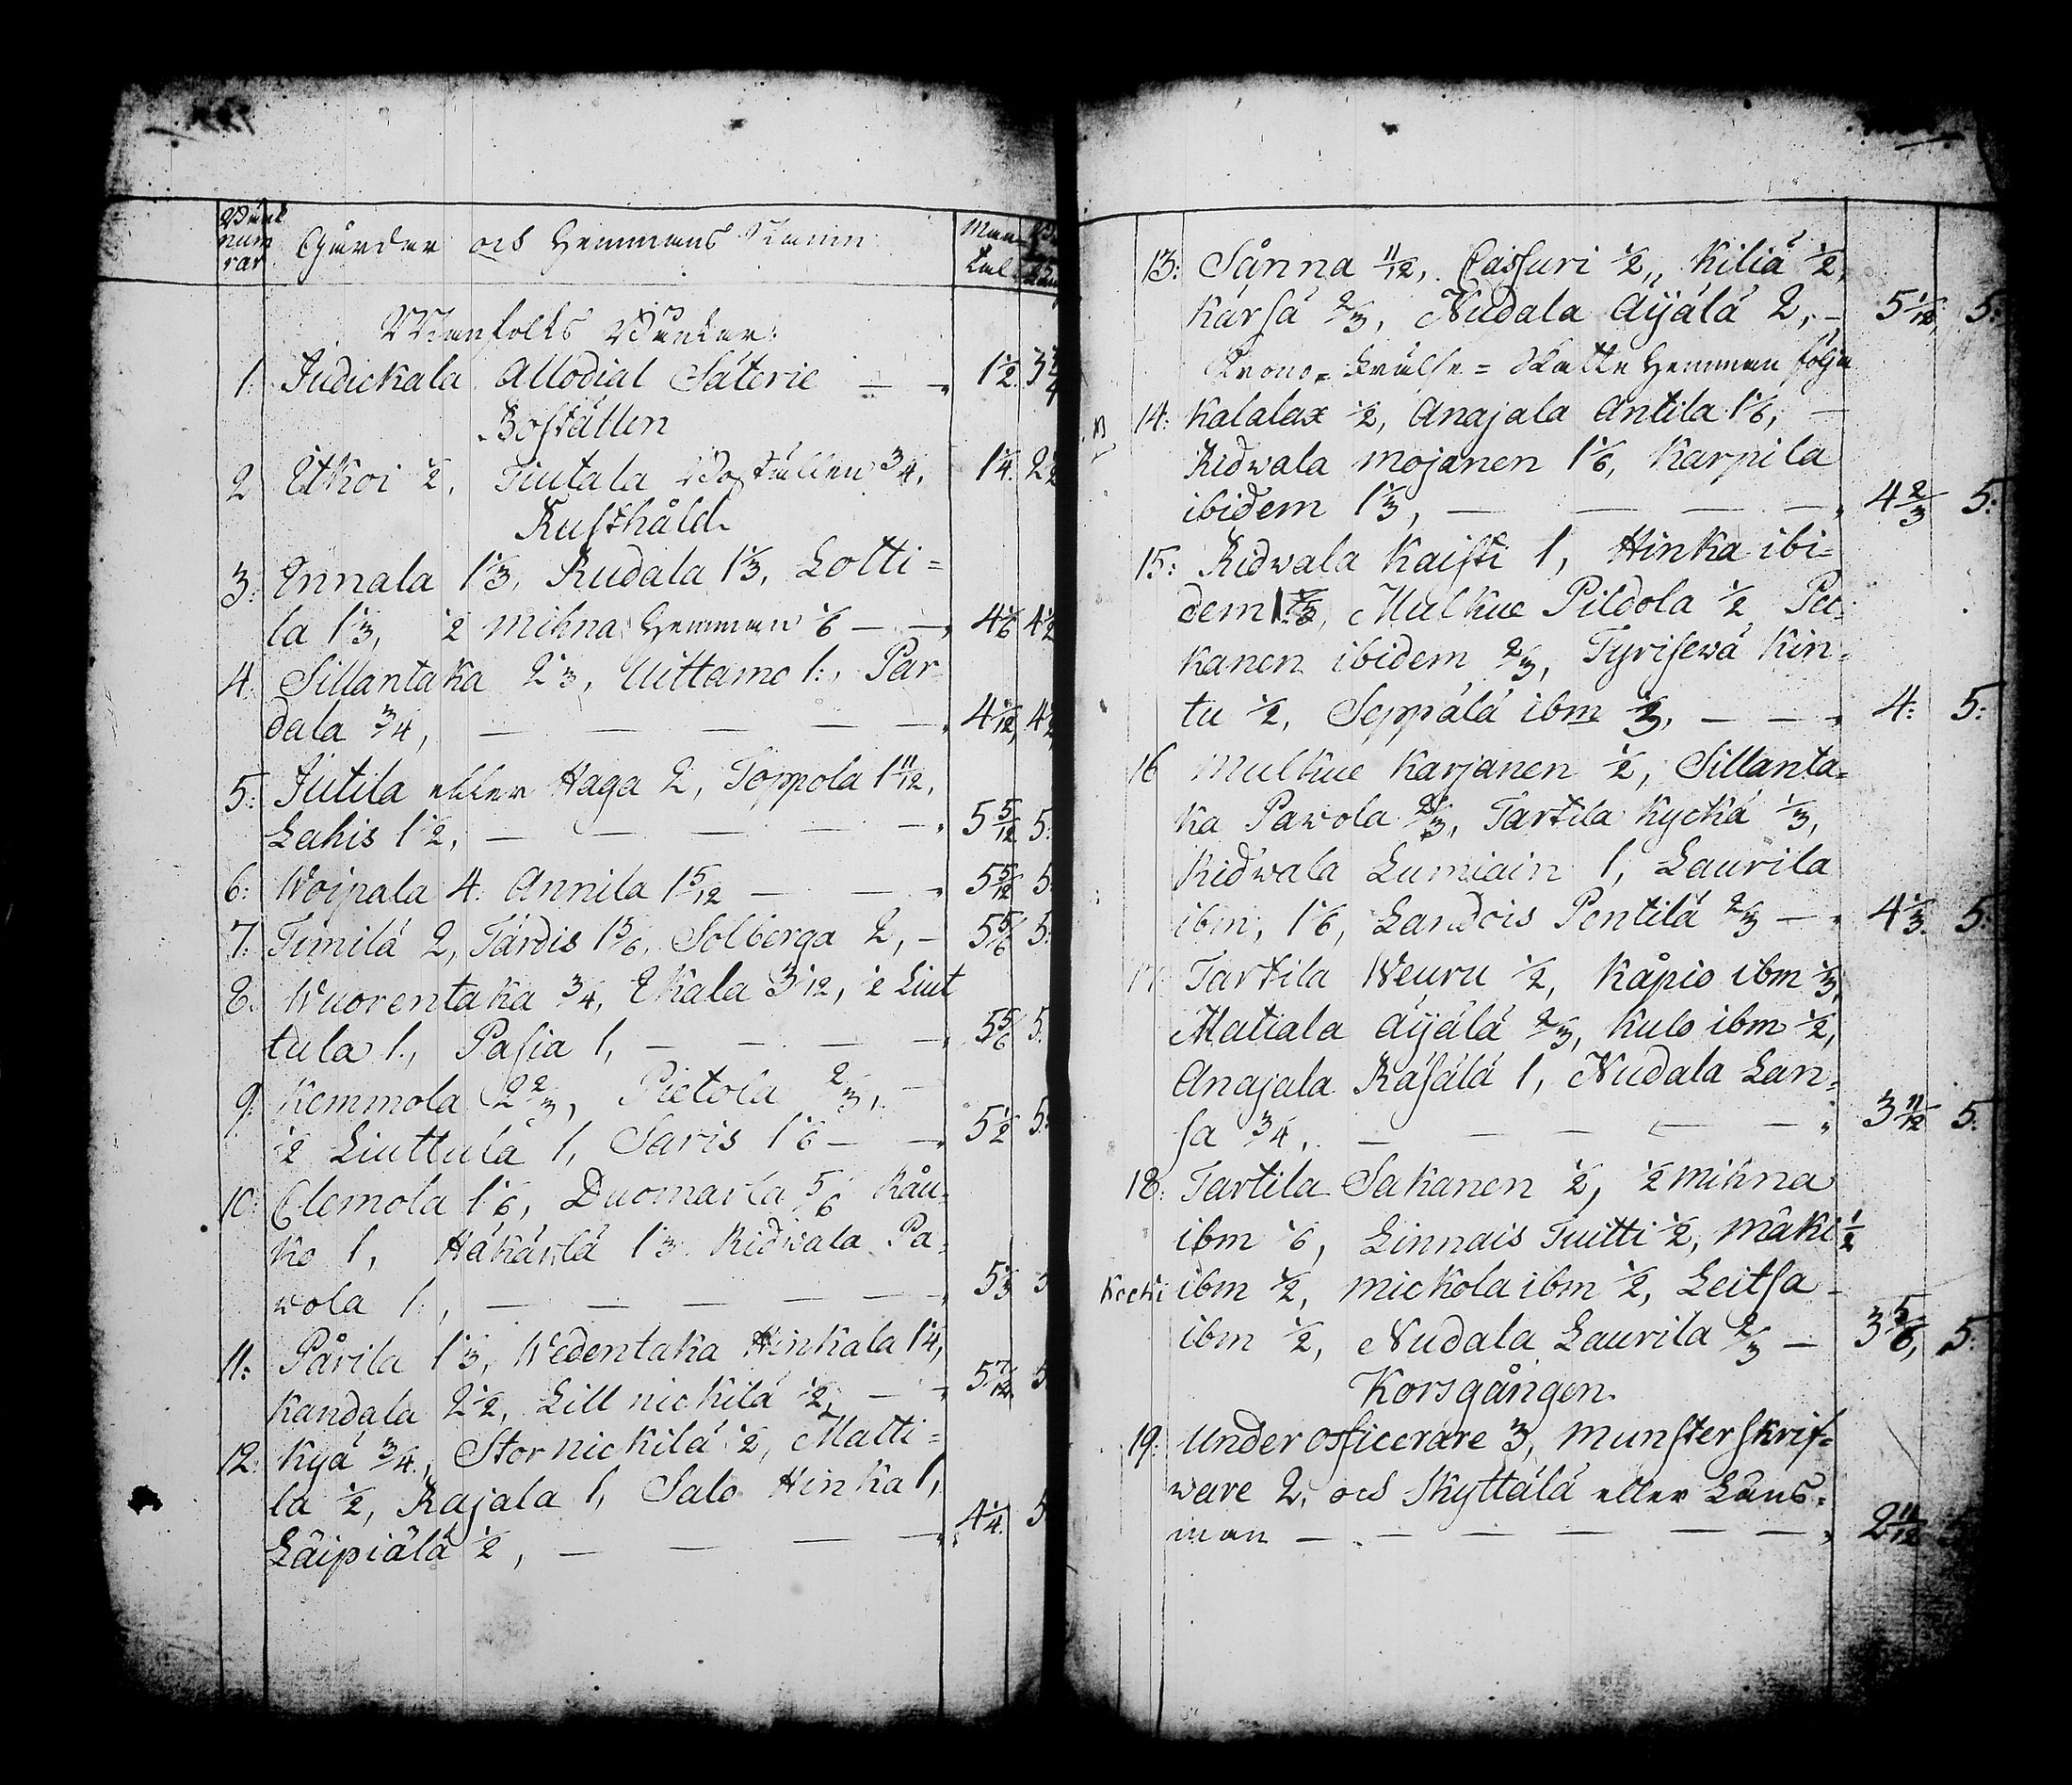 Bänk
num
rar
Gårdar och Hemmans Namn
Man=
tal
Manfolks Bänkar:
1. Judickala Allodial Säterie — „ 1½ 3¾
Boställen
2 Etkoi ½, Tiutala Boställen ¾, 1¼ 2½
Rusthåld.
3: Ennala 1⅓, Rudala 1⅓, Lotti=
la 1⅓, ½ Mihna Hemman ⅙ — „ 4⅙ 4½
4. Sillantaka 2⅓, Uittamo 1:, Par
dala ¾, — — — — „ 4 1/12, 4½
5: Jutila eller Haga 2, Toppola 1 11/12,
Lahis 1½, — — — — „ 5 5/12 5:
6: Woipala 4. Annila 1 5/12 — — „ 5 5/12 5:
7. Timilä 2, Tärdis 1 5/6, Solberga 2, — 5 5/6 5:
8. Wuorentaka ¾, Ekala 3 1/12, ½ Liut
tula 1., Pasia 1, — — — „ 5 5/6 5.
9: Kemmola 2 2/3, Pietola 2/3, —
½ Liuttula 1, Saris 1⅙ — „ 5½ 5:
10: Clemola 1⅙, Duomarla 5/6 Råu=
ko 1, Häkärlä 1⅓ Ridvala Pa=
wola 1:, — — — — — „ 5⅓ 5
11: Pärila 1⅓, Wedentaka Hinkala 1¼,
Kandala 2½, Lill nickilä ½, — „ 5 7/12. 5.
12: Kyä ¾., Stor nickilä ½, Matti=
la ½, Rajala 1, Salo Hinka 1,
Läipiälä ½, — — — „ 4¼. 5
13: Sånna 11/12, Cassuri ½,, Kiliä ½,
Kärsä 2/3, Nudala Äijälä 2, — 5 1/12, 5:
Krono= Frälse= Skatte Hemman följa
14: Kalalax ½, Anajala Antila 1⅙, —
Ridvala Mojanen 1⅙, Karpila
ibidem 1⅓, — — — — „ 4 2/3 5:
15: Ridvala Kaisti 1, Hinka ibi=
dem Mulkue Pildola ½ Pee=
kanen ibidem 2/3, Tyrisewä Kin=
tu ½, Seppälä ibm ⅓, — — „ 4: 5:
16 Mulkue Karjanen ½, Sillanta=
ka Pawola 2/3, Tartila Kyckä ⅓,
Ridvala Lumiain 1, Laurila
ibm, 1⅙, Landois Pentilä 2/3 — „ 4⅓. 5:
17 Tartila Weuru ½, Kåpio ibm ⅓,
Matiala Äijälä 2/3, Kulo ibm ½,
Anajala Räsälä 1, Nudala Lan=
sa ¾, — — — — — „ 3 11/12 5:
18: Tartila Sakanen ½, ½ Mihna
ibm ⅙, Linnais Tuitti ½, Mäki ½
ibm ½, Mickola ibm ½, Leitsa —
ibm ½, Nudala Laurila 2/3 — 3 5/6, 5:
Korsgången.
19: Under officerare 3, Munsterskrif=
ware 2, och Skyttälä eller Läns=
man — — — — — „ 2 11/12